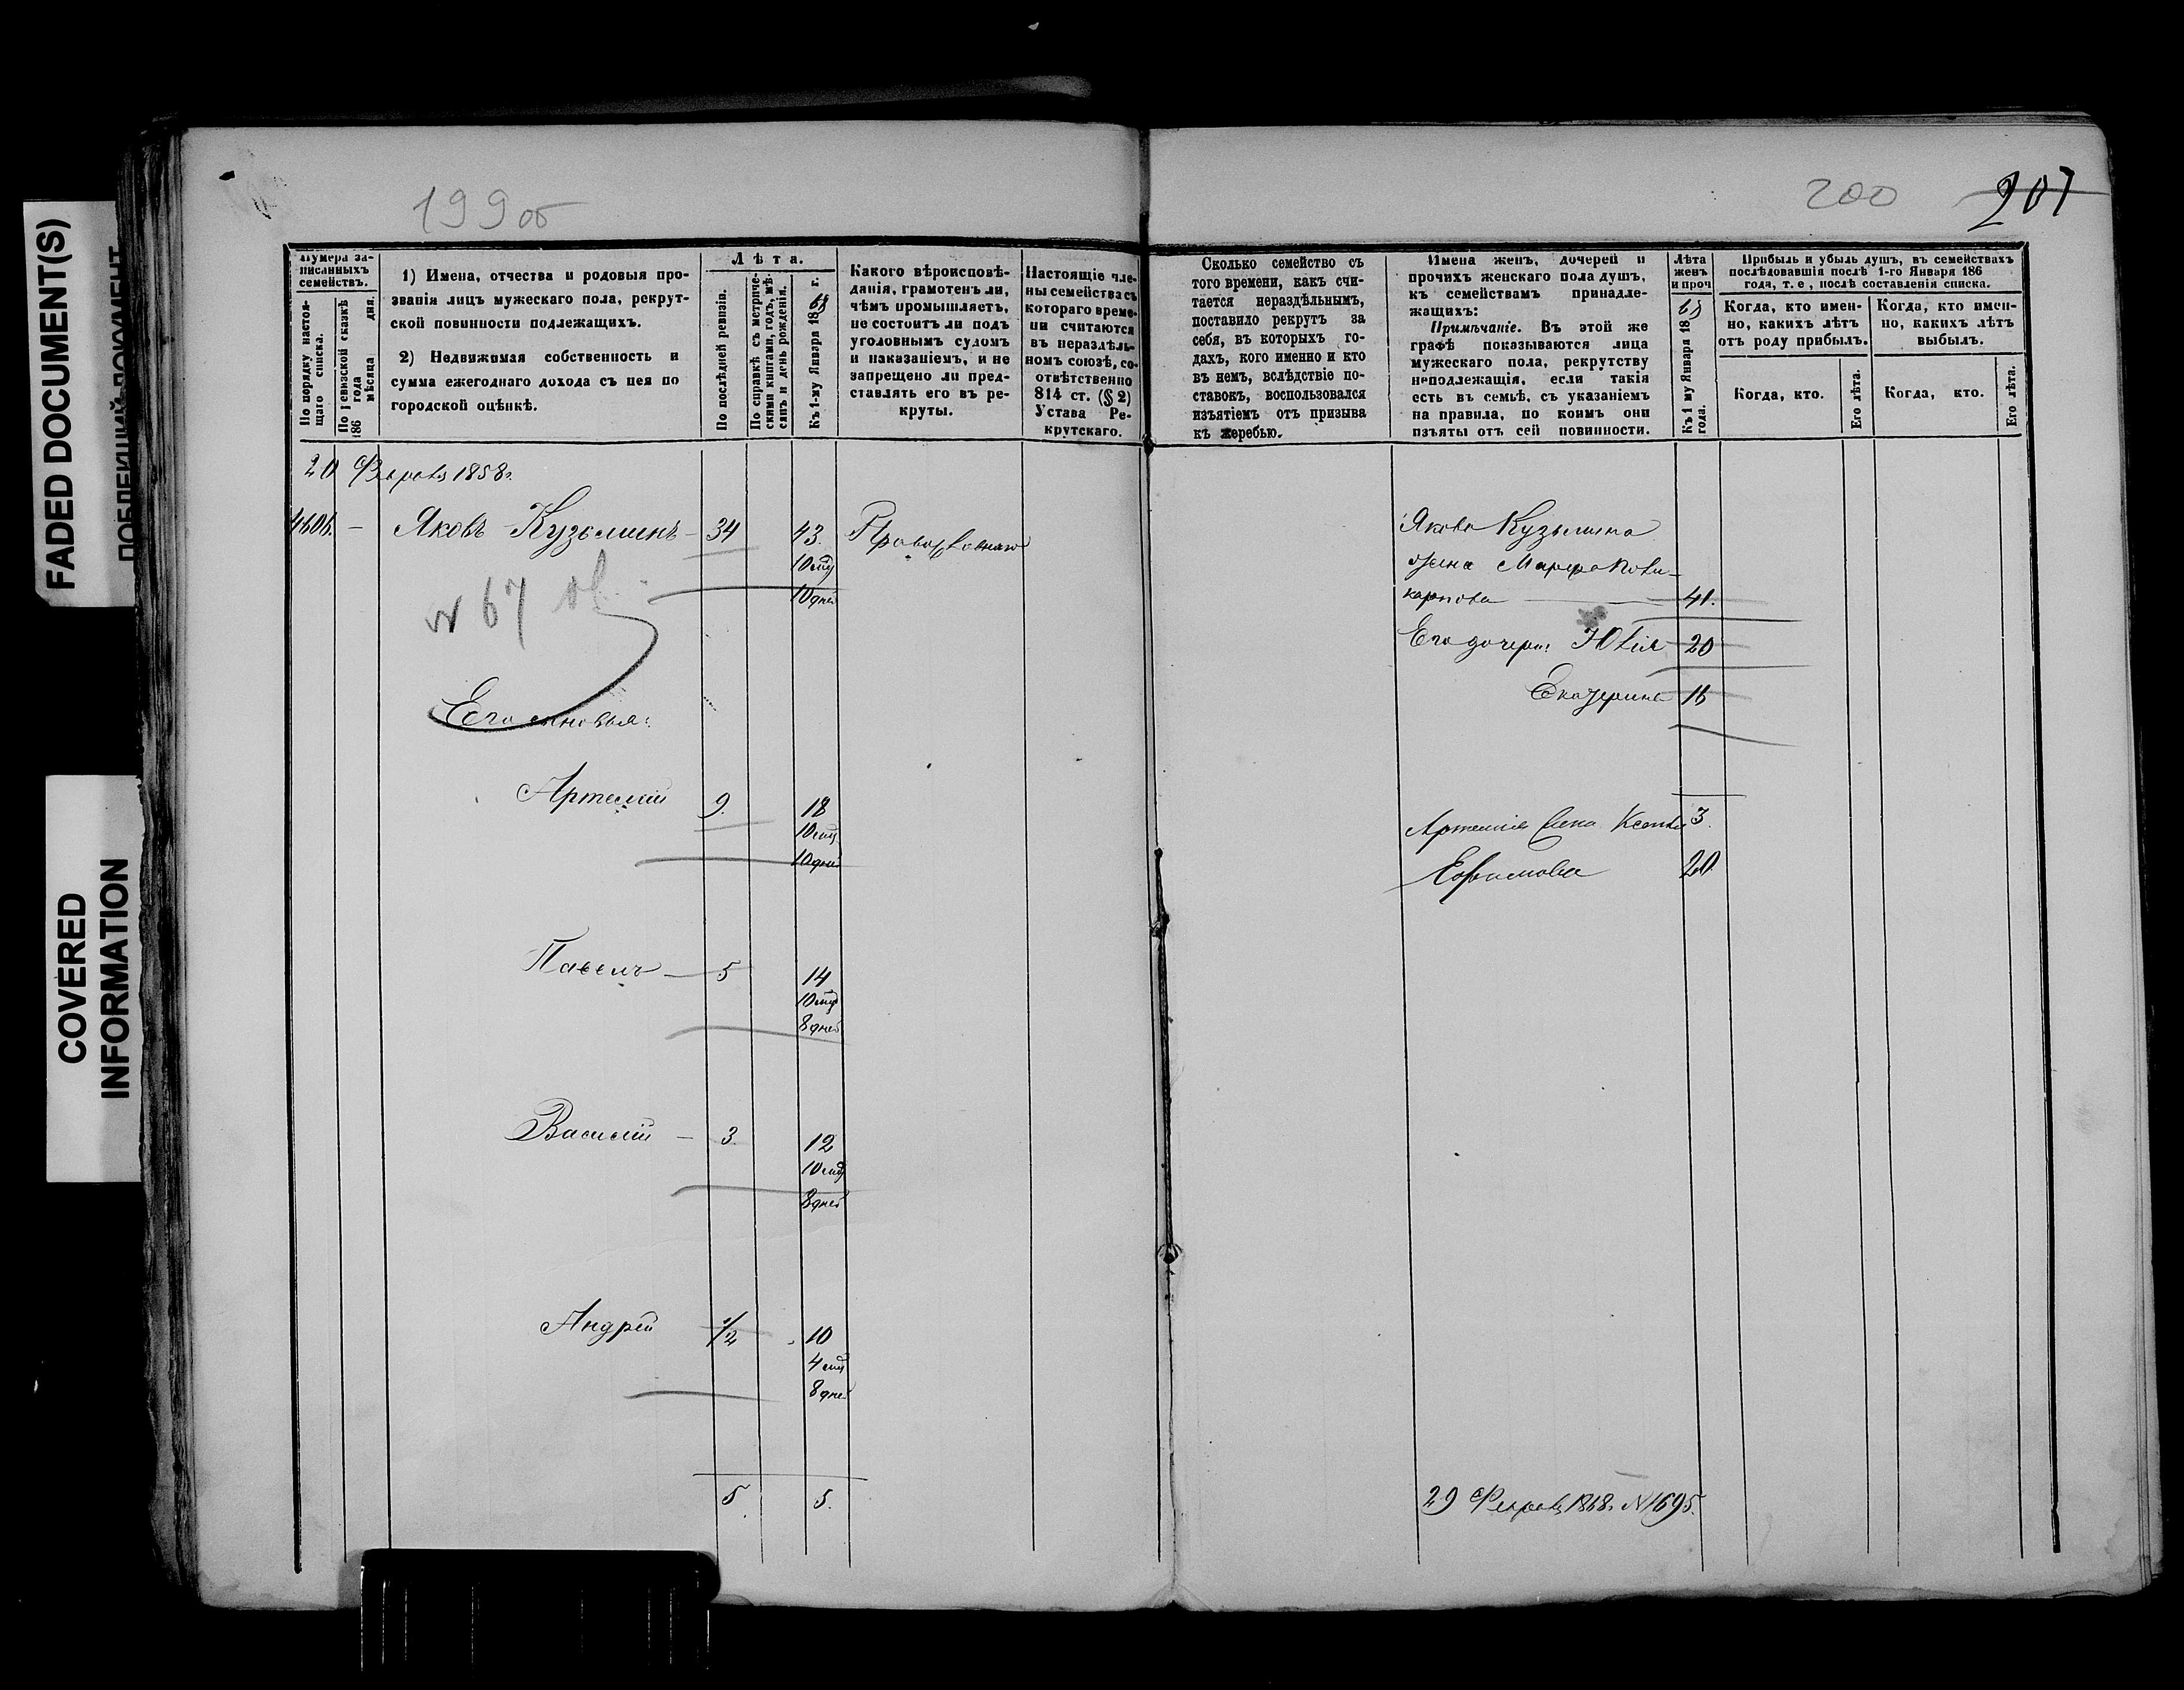 FADED DOCUMENT(S)
COVERED
INFORMATION
199 об
200 207
Нумера за-
писанныхъ
семействъ.
По порядку настоя-
щаго списка.
По ревизской сказкѣ
186 года мѣсяца дня.
1) Имена, отчества и родовыя про-
званія лицъ мужескаго пола, рекрут-
ской повинности подлежащихъ.
2) Недвижимая собственность и
сумма ежегоднаго дохода съ нея по
городской оцѣнкѣ.
Лѣта.
По послѣдней ревизіи.
По справкѣ съ метриче-
скими книгами, годъ, мѣ-
сяцъ и день рожденія.
Къ 1-му Января 1868 г.
Какого вѣроисповѣ-
данія, грамотенъ ли,
чѣмъ промышляетъ,
не состоитъ ли подъ
уголовнымъ судомъ
и наказаніемъ, и не
запрещено ли пред-
ставлять его въ ре-
круты.
Настоящіе чле-
ны семейства съ
котораго време-
ни считаются
въ нераздѣль-
номъ союзѣ, со-
отвѣтственно
814 ст. (§ 2)
Устава Ре-
крутскаго.
Сколько семейство съ
того времени, какъ счи-
тается нераздѣльнымъ,
поставило рекрутъ за
себя, въ которыхъ го-
дахъ, кого именно и кто
въ немъ, вслѣдствіе по-
ставокъ, воспользовался
изъятіемъ отъ призыва
къ жеребью.
Имена женъ, дочерей и
прочихъ женскаго пола душъ,
къ семействамъ принадле-
жащихъ:
Примѣчаніе. Въ этой же
графѣ показываются лица
мужескаго пола, рекрутству
неподлежащія, если такія
есть въ семьѣ, съ указаніемъ
на правила, по коимъ они
изъяты отъ сей повинности.
Лѣта
женъ
и проч
Къ 1 му Января 1868
года.
Прибыль и убыль душъ, въ семействахъ
послѣдовавшія послѣ 1-го Января 186
года, т. е, послѣ составленія списка.
Когда, кто имен-
но, какихъ лѣтъ
отъ роду прибылъ.
Когда, кто имен-
но, какихъ лѣтъ
выбылъ.
Когда, кто.
Его лѣта.
Когда, кто.
Его лѣта.
20 Февраля 1858 г.
Яковъ Кузьминъ — 34 43.
10 мцъ
10 дней
Православнаго
N 67
Его сыновья:
Артемій 9. 18
10 мцъ
10 дней
Павелъ — 5 14
10 мцъ
8 дней
Василій — 3. 12
10 мцъ
8 дней
Андрей 1/2 10
4 мцъ
8 дней
5. 5.
Якова Кузьмина
жена Марфа Поли-
карпова — 41.
Его дочери: Юлія 20
Екатерина 16
Артемія жена Ксенія 3.
Ефимова 20
29 Февраля 1868 г. N 1695.